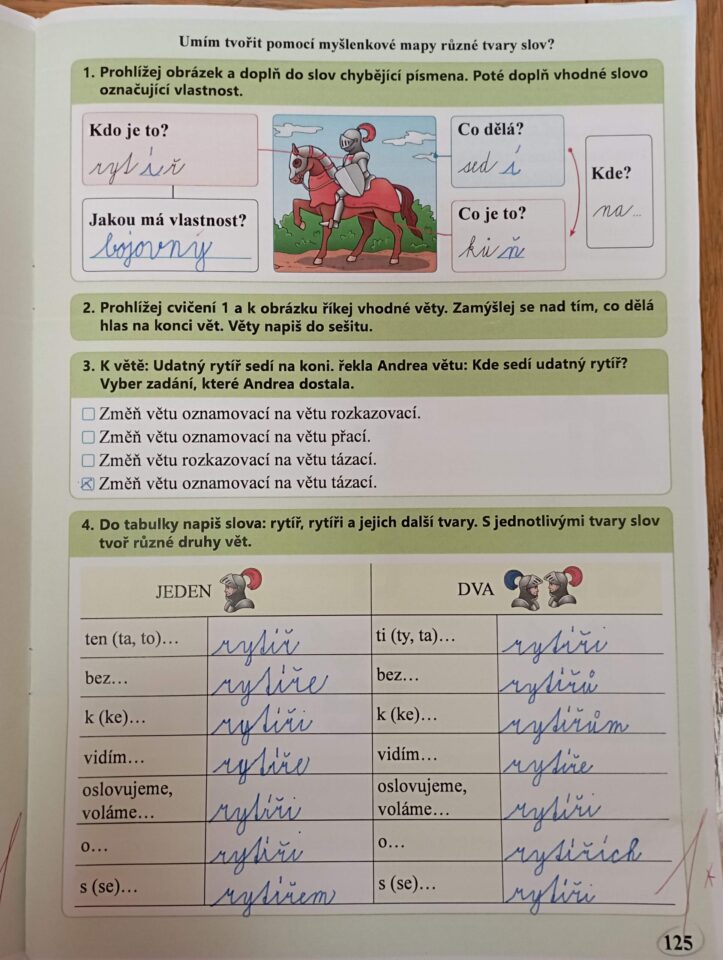 Umím tvořit pomocí myšlenkové mapy různé tvary slov?
1. Prohlížej obrázek a doplň do slov chybějící písmena. Poté doplň vhodné slovo
označující vlastnost.
Kdo je to?
rytíř
Jakou má vlastnost?
bojovny
Co dělá?
sedí
Co je to?
kůň
Kde?
na...
2. Prohlížej cvičení 1 a k obrázku říkej vhodné věty. Zamýšlej se nad tím, co dělá
hlas na konci vět. Věty napiš do sešitu.
3. K větě: Udatný rytíř sedí na koni. řekla Andrea větu: Kde sedí udatný rytíř?
Vyber zadání, které Andrea dostala.
Změň větu oznamovací na větu rozkazovací.
Změň větu oznamovací na větu přací.
Změň větu rozkazovací na větu tázací.
Změň větu oznamovací na větu tázací.
4. Do tabulky napiš slova: rytíř, rytíři a jejich další tvary. S jednotlivými tvary slov
tvoř různé druhy vět.
JEDEN DVA
ten (ta, to)... rytíř ti (ty, ta)... rytíři
bez... rytíře bez... rytířů
k (ke)... rytíři k (ke)... rytířům
vidím... rytíře vidím... rytíře
oslovujeme,
voláme... rytíři oslovujeme,
voláme... rytíři
o... rytíři o... rytířích
s (se)... rytířem s (se)... rytíři
125